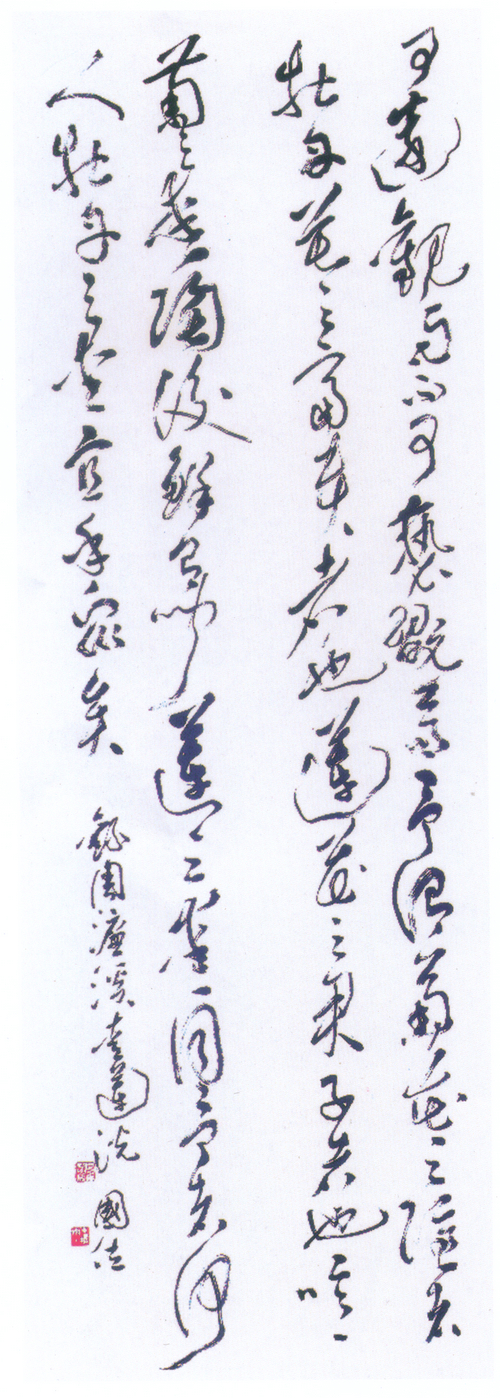 可遠觀而不可褻翫焉予謂菊花之隱者
牡丹花之富貴者也蓮花之君子者也噫
菊之愛陶後鮮有聞蓮之愛同予者何
人牡丹之愛宜乎眾矣
錄周濂溪愛蓮說 國